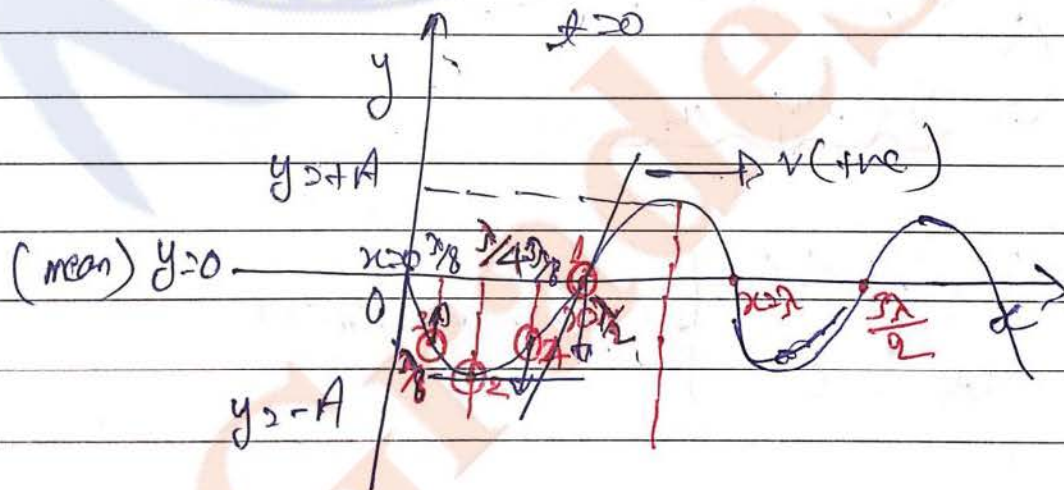 t=0
y
y=+A
v(+ve)
(mean) y=0
x=0 λ/8 λ/4 3λ/8 1
0
3
2
4
x=λ/2
x=λ
3λ/2
x
λ/8
y=-A